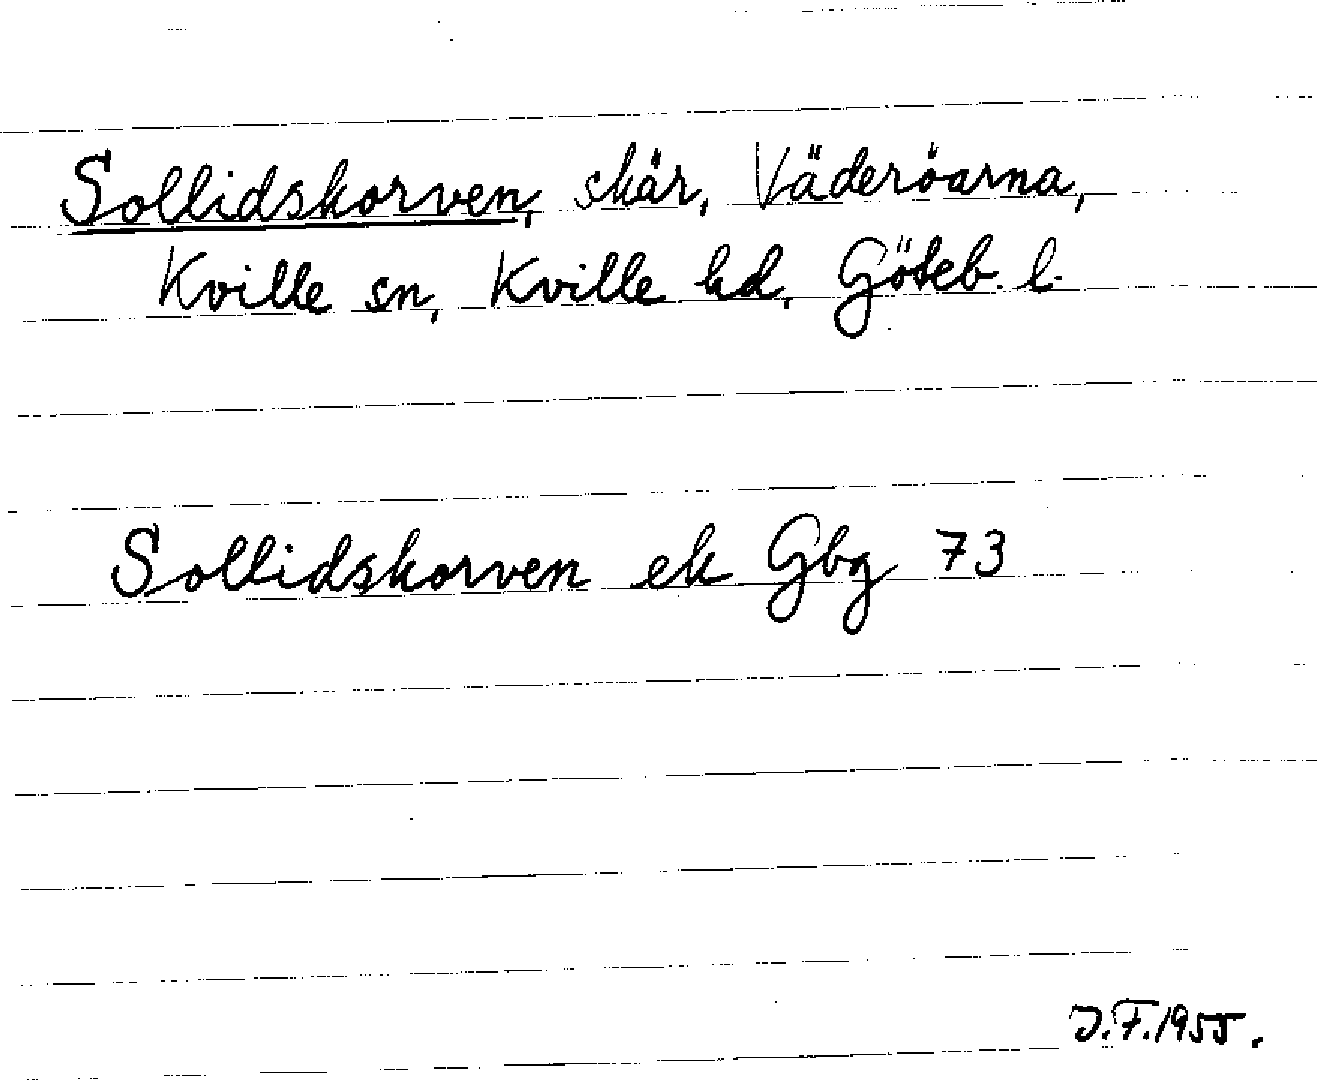 Sollidskorven, skär, Väderöarna,
Kville sn, Kville hd, Göteb. l.
Sollidskorven ek Gbg 73
J.F.1955.